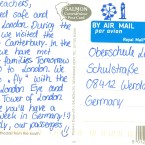 eachers,
ed safe and
London. During the
we visited the
Canterbury. In the
we have met
families. Tomorrow
to London. We
"fly" with the
London Eye and
Tower of London.
you'll have a
week in Germany!!!
, our passengers
SALMON
BY AIR MAIL
par avion
Royal Mail
Oberschule
Schulstraße
08412 Werda
Germany